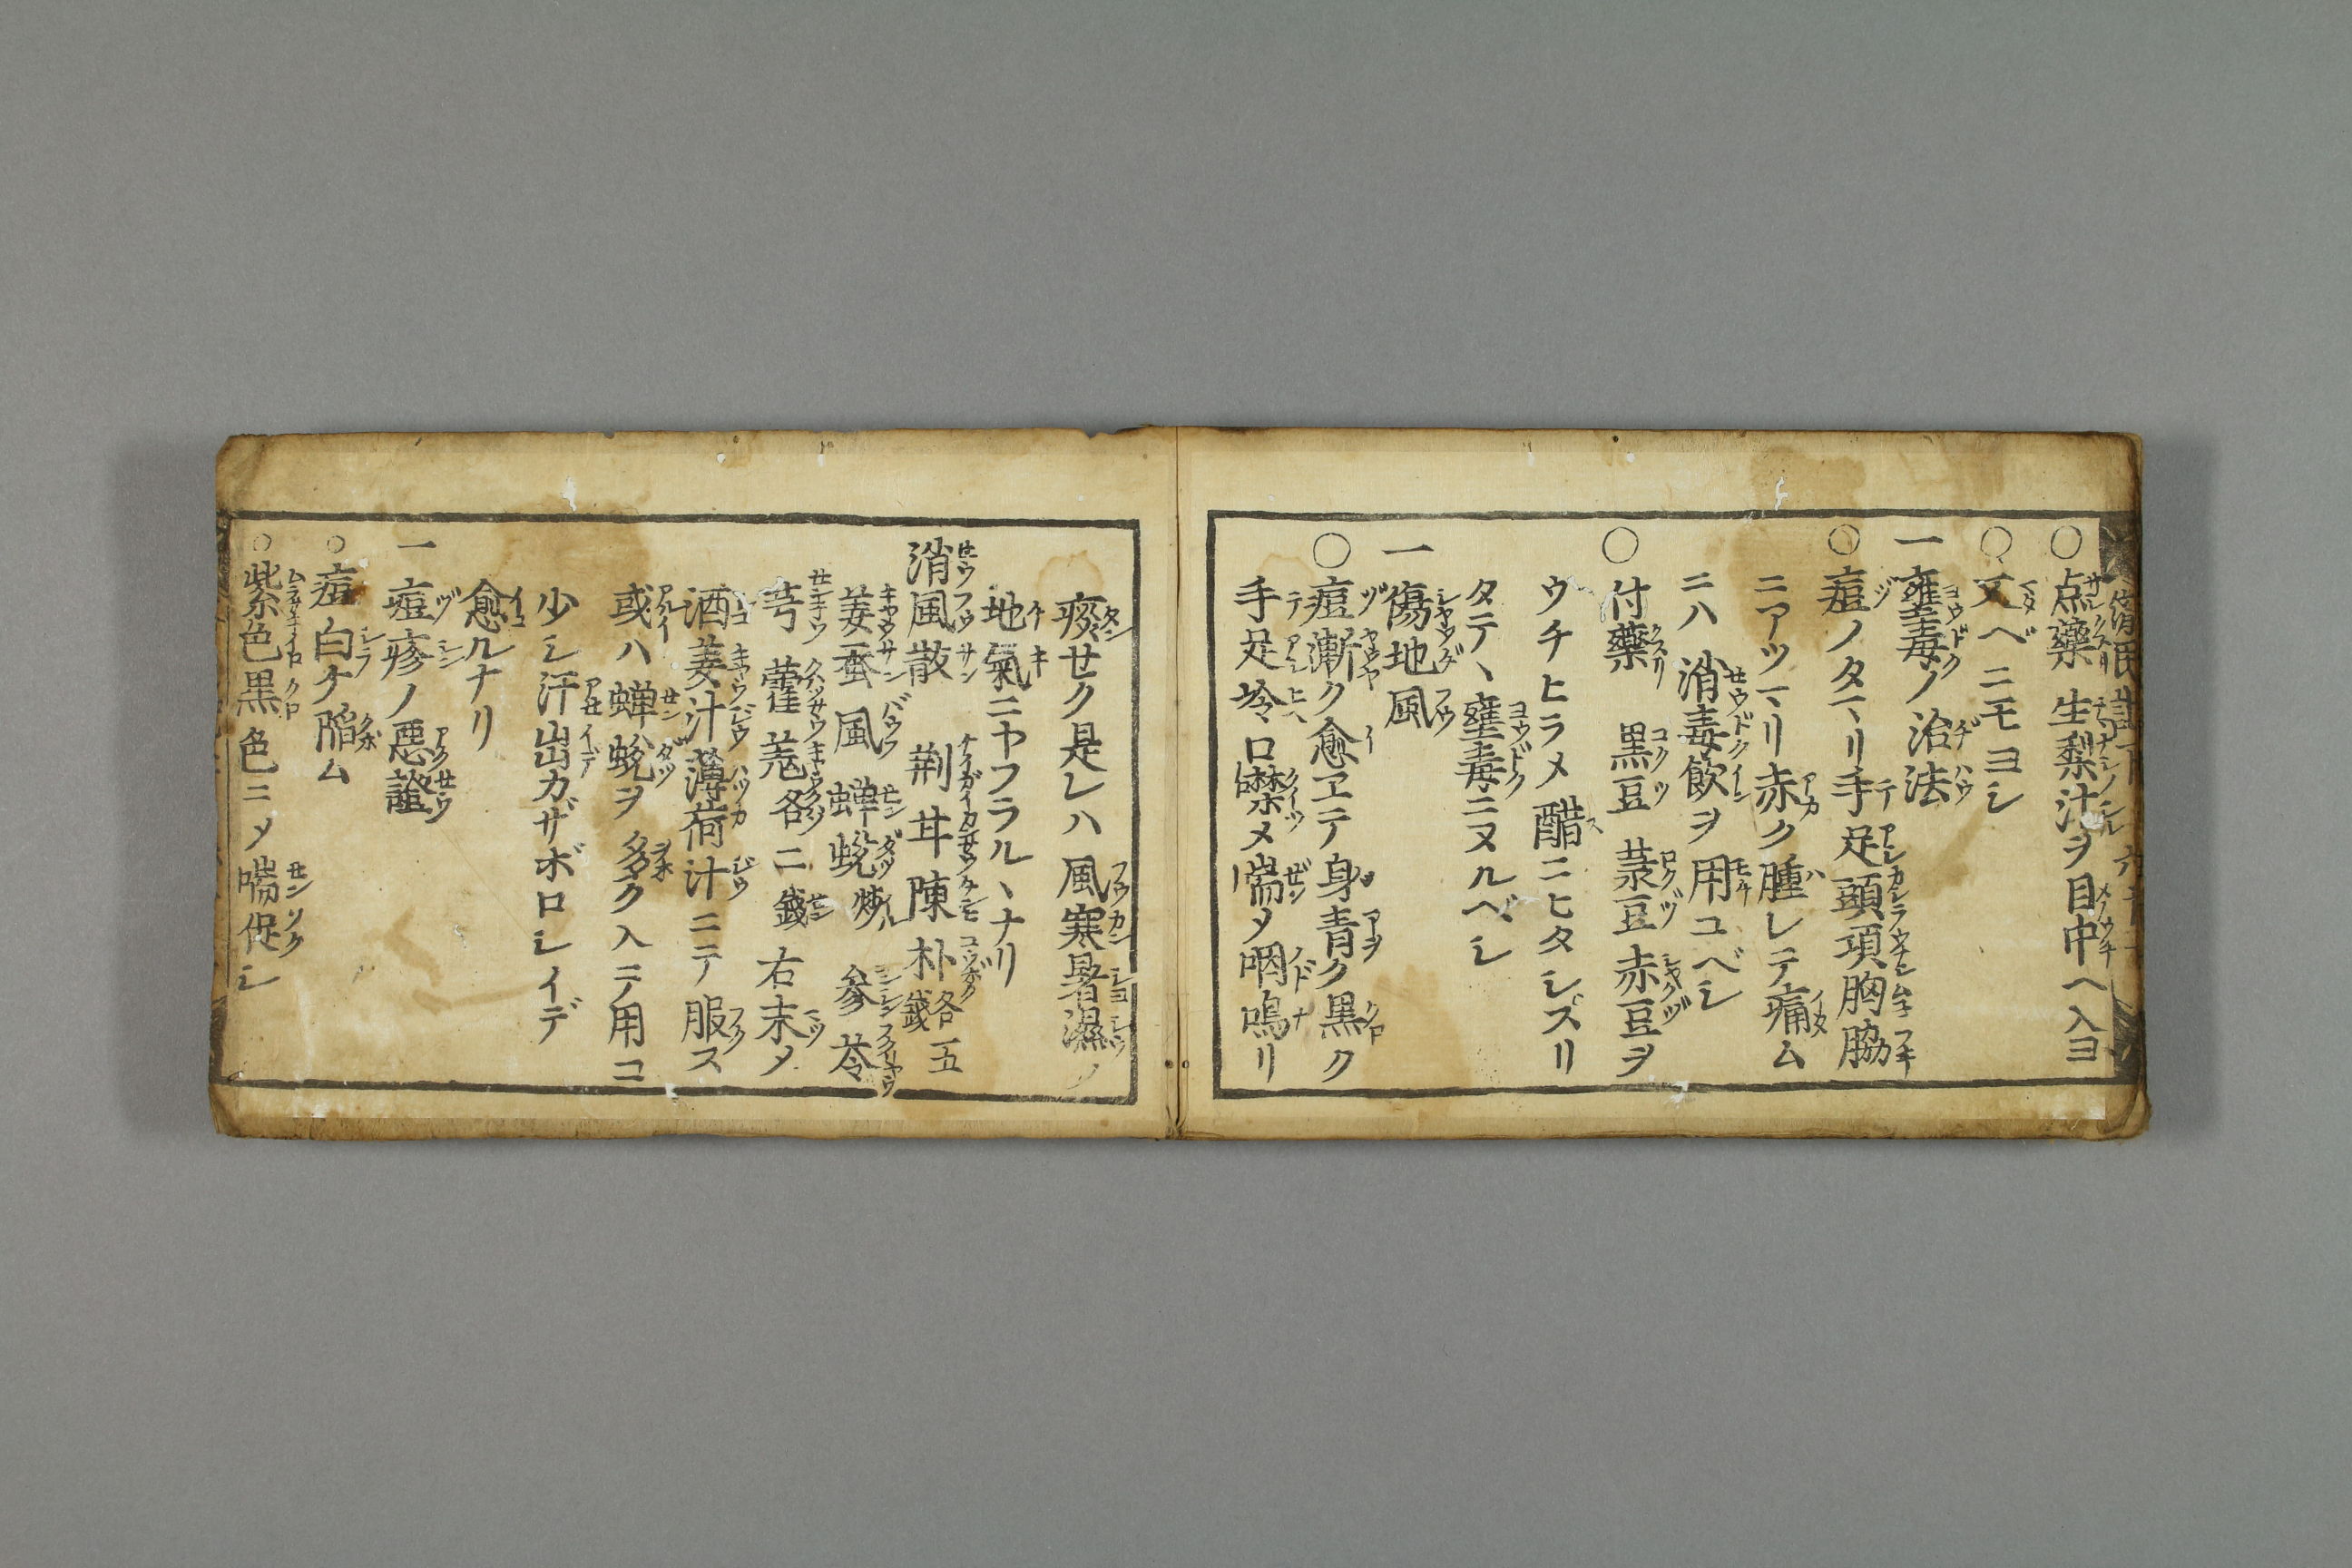 ○点藥 生梨汁ヲ目中ヘ入ヨ
○又ベニモヨシ
一壅毒ノ治法
○痘ノタマリ手足頭項胸脇
ニアツマリ赤ク腫レテ痛ム
ニハ 消毒飲ヲ用ユベシ
○付藥 黒豆 菉豆 赤豆ヲ
ウチヒラメ醋ニヒタシスリ
タテヽ壅毒ニヌルベシ
一傷地風
○痘漸ク愈ヱテ身青ク黒ク
手足冷口噤メ喘メ咽鳴リ
痰せク是レハ風寒暑濕ノ
地氣ニヤフラルヽナリ
消風散 荆芥 陳朴各五錢
姜蚕 風 蝉蛻炒 參 苓
芎 藿 羗各二錢 右末メ
酒姜汁薄荷汁ニテ服ス
或ハ蝉蛻ヲ多ク入テ用コ
少シ汗出カザボロシイデ
愈ルナリ
一痘疹ノ惡證
○痘白ケ陥ム
○紫色黒色ニメ喘促シ